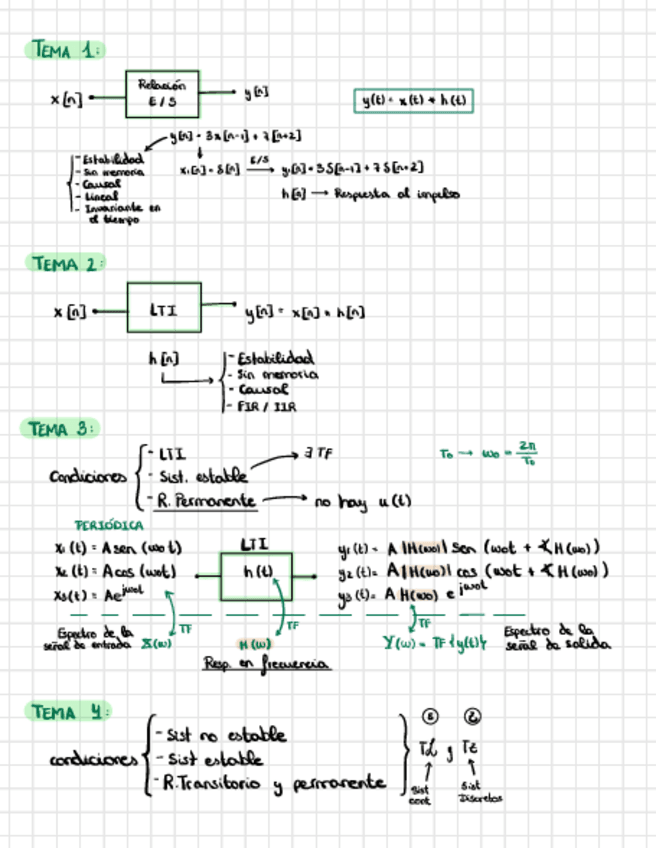 TEMA 1:
x[n] Relación E/S y[n]
y(t) = x(t) * h(t)
y[n] = 3x[n-1] + 7[n+2]
- Estabilidad
- Sin memoria
- Causal
- Lineal
- Invariante en el tiempo
x1[n] = δ[n] E/S → y1[n] = 3δ[n-1] + 7δ[n+2]
h[n] → Respuesta al impulso
TEMA 2:
x[n] LTI y[n] = x[n] * h[n]
h[n]
- Estabilidad
- Sin memoria
- Causal
- FIR / IIR
TEMA 3:
Condiciones
- LTI
- Sist. estable → ∃ TF
- R. Permanente → no hay u(t)
T0 → ω0 = 2π/T0
PERIÓDICA
x1(t) = A sen (ω0 t)
x2(t) = A cos (ω0t)
x3(t) = Ae^jω0t
LTI
h(t)
y1(t) = A |H(ω0)| sen (ω0t + ∢H(ω0))
y2(t) = A |H(ω0)| cos (ω0t + ∢H(ω0))
y3(t) = A H(ω0) e^jω0t
Espectro de la señal de entrada X(ω) TF
H(ω) TF
Resp. en frecuencia
TF
Y(ω) = TF{y(t)}
Espectro de la señal de salida
TEMA 4:
condiciones
- Sist no estable
- Sist estable
- R. Transitorio y permanente
① ②
TL y TZ
Sist cont.
Sist Discretos